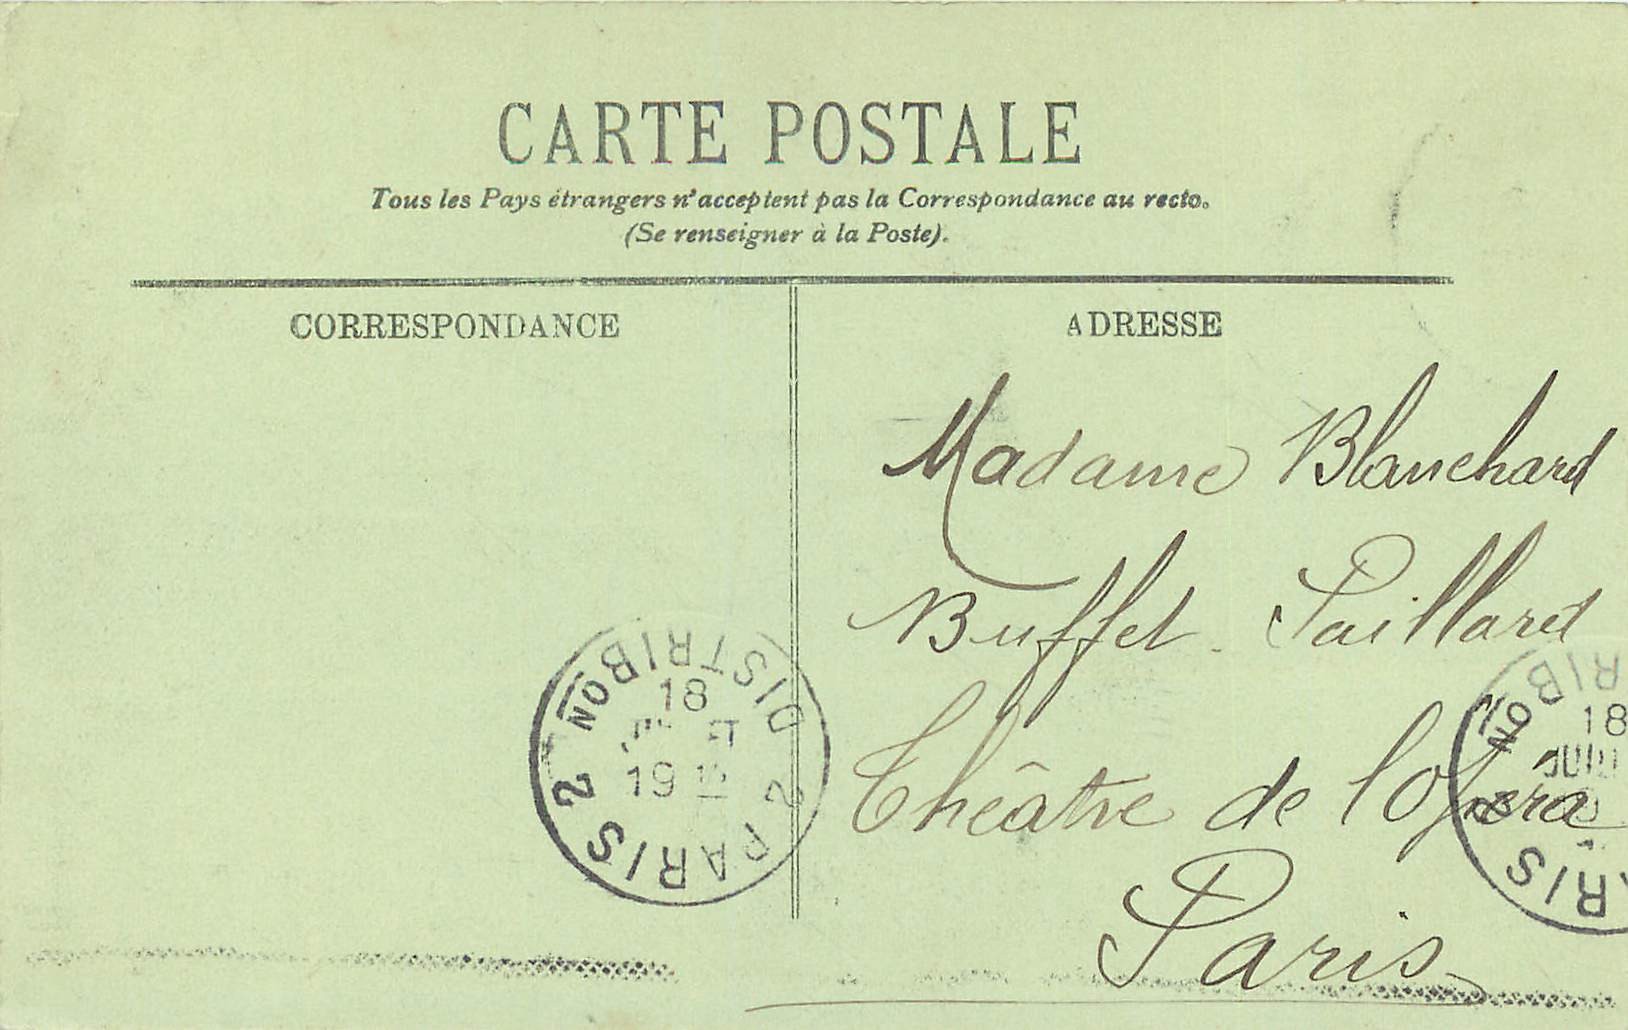 CARTE POSTALE
Tous les Pays étrangers n'acceptent pas la Correspondance au recto.
(Se renseigner à la Poste).
CORRESPONDANCE
ADRESSE
Madame Blanchard
Buffet Paillard
Théâtre de l'Opéra
Paris
PARIS 2 DISTRIBON
18
19
RIBON
18
JUIL
ARIS